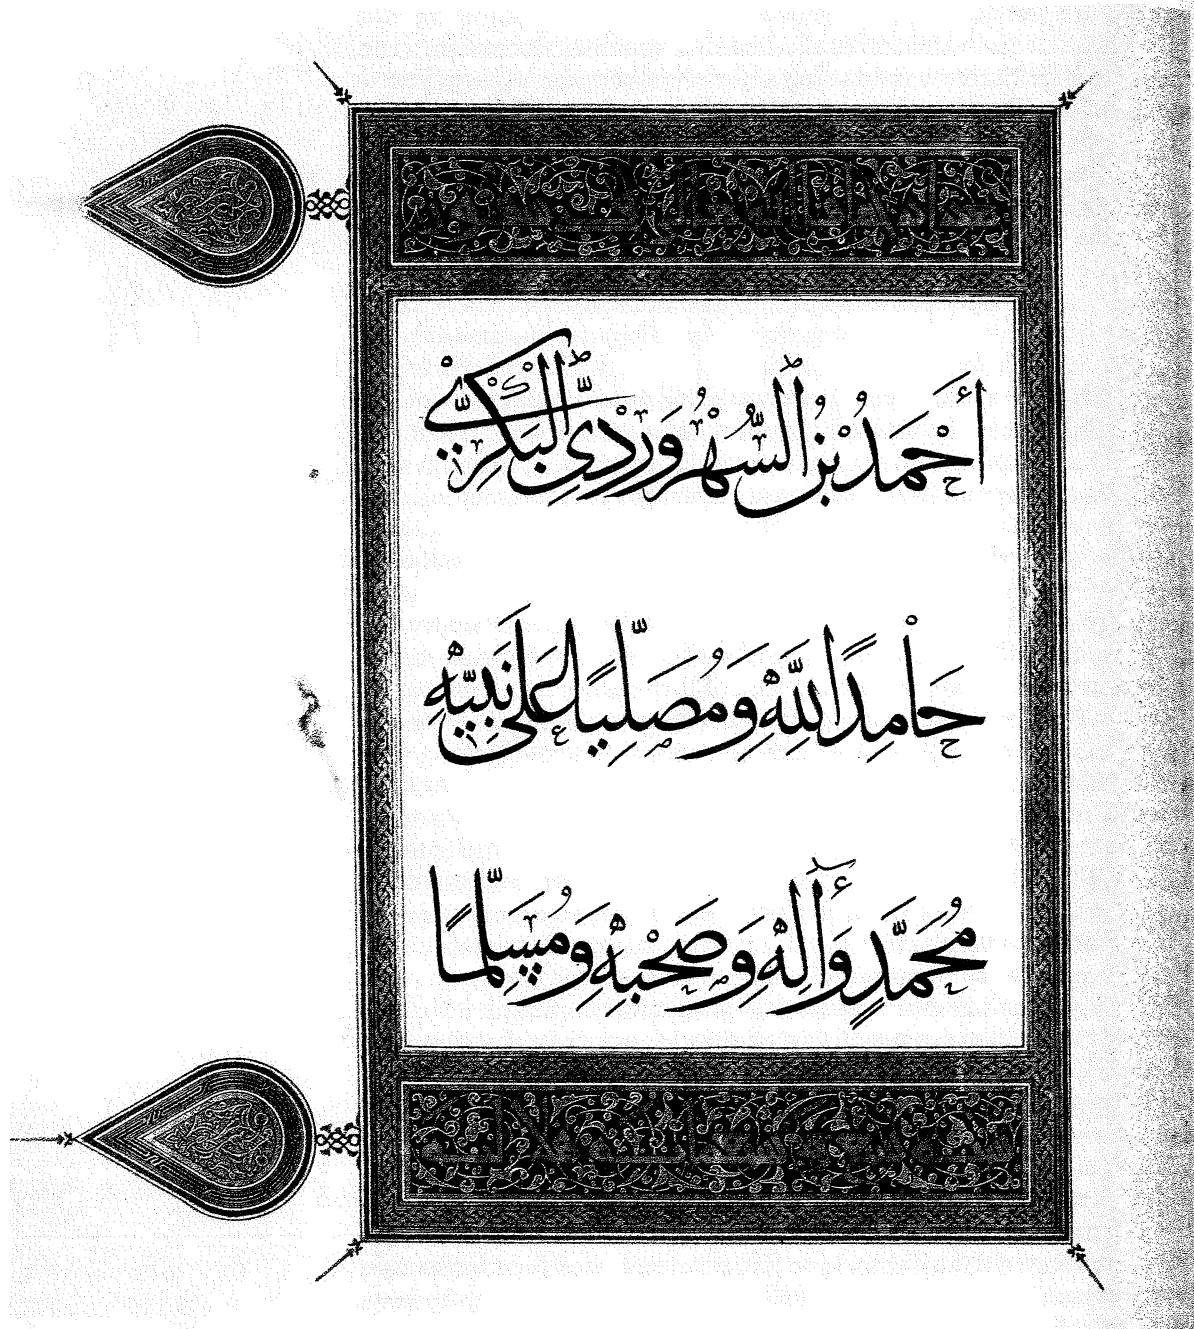 أَحْمَدُ بْنُ ٱلسُّهْرُوَرْدِيِّ ٱلْبَكْرِيِّ
حَامِدًا لِلّٰهِ وَمُصَلِّيًا عَلَى نَبِيِّهِ
مُحَمَّدٍ وَآلِهِ وَصَحْبِهِ وَمُسَلِّمًا